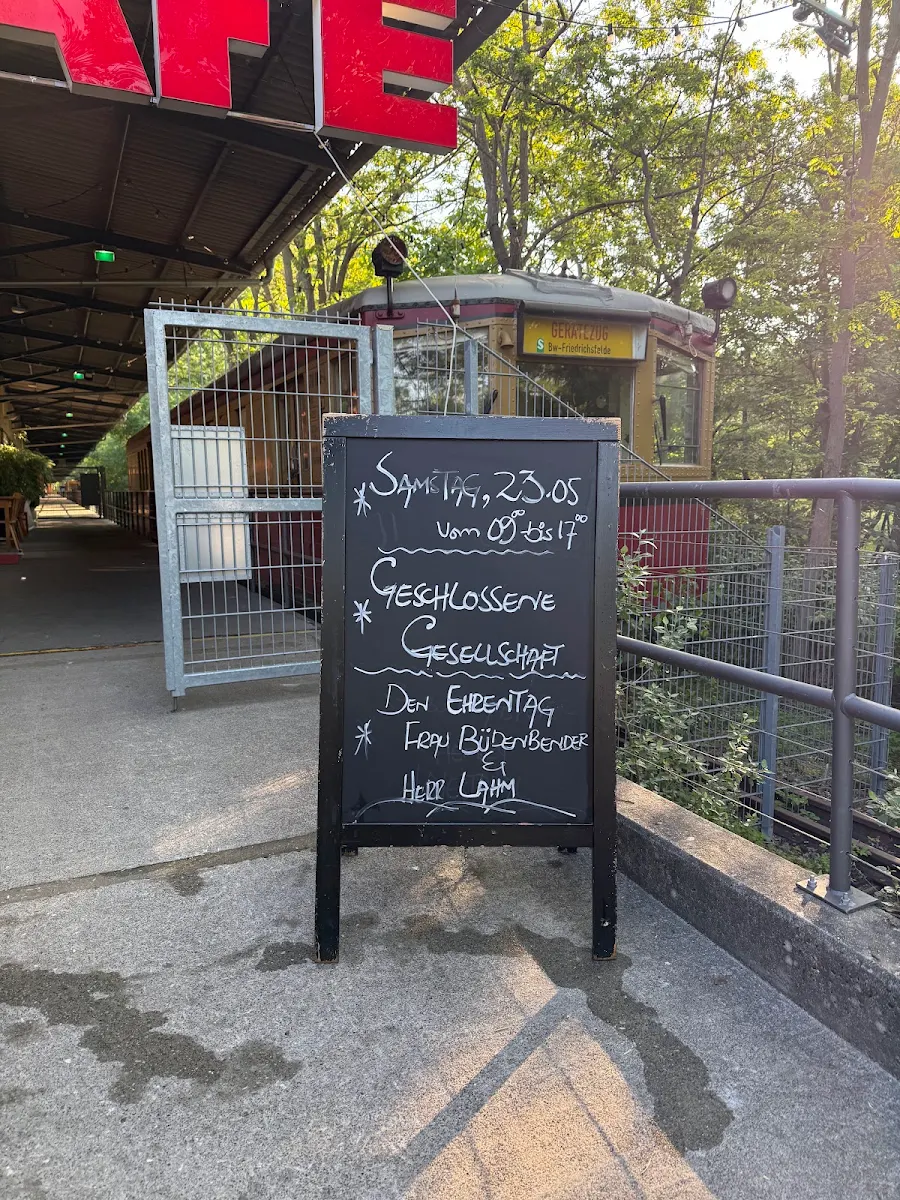 AFE
GERÄTEZUG
S Bw-Friedrichsfelde
SAMSTAG, 23.05
vom 09⁰⁰ bis 17⁰⁰
GESCHLOSSENE
GESELLSCHAFT
DEN EHRENTAG
FRAU BÜDENBENDER
&
HERR LAHM